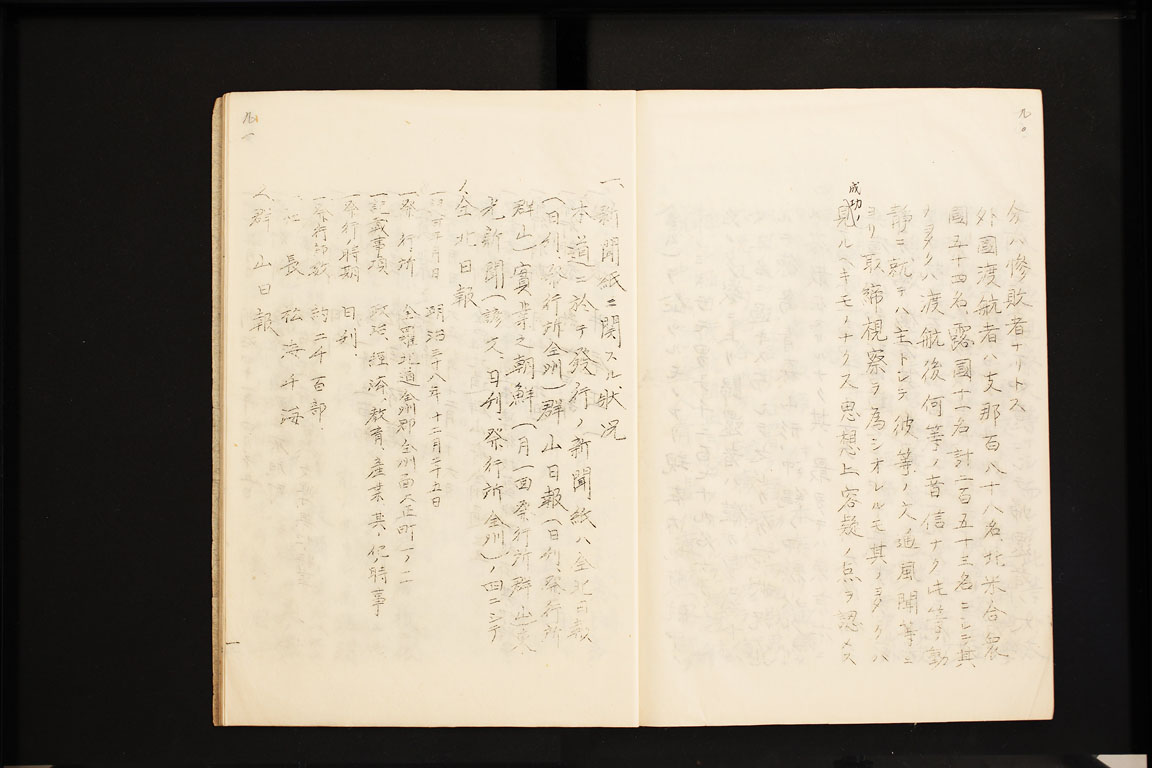 九〇
今ハ惨敗者ナリトス
外國渡航者ハ支那百八十八名北米合衆
國五十四名露國十一名計二百五十三名ニシテ其
ノ多クハ渡航後何等ノ音信ナク此等動
静ニ就テハ主トシテ彼等ノ文通風聞等ニ
ヨリ取締視察ヲ為シオレルモ其ノ多クハ
成功ノ
見ルヘキモノナクス思想上容疑ノ点ヲ認メス
九一
一、新聞紙ニ関スル狀况
本道ニ於テ發行ノ新聞紙ハ全北日報
(日刊、発行所全州)群山日報(日刊発行所
群山)實業之朝鮮(月一回発行所群山)東
光新聞(諺文、日刊、発行所全州)ノ四ニシテ
全北日報
一、年月日 明治三十八年十二月二十五日
一、発行所 全羅北道全州郡全州面大正町一ノ二
一、記載事項 政治、經済、教育、産業其ノ他ノ時事
一、発行ノ時期 日刊、
一、発行部数 約二千百部、
長 松海千海
群山日報